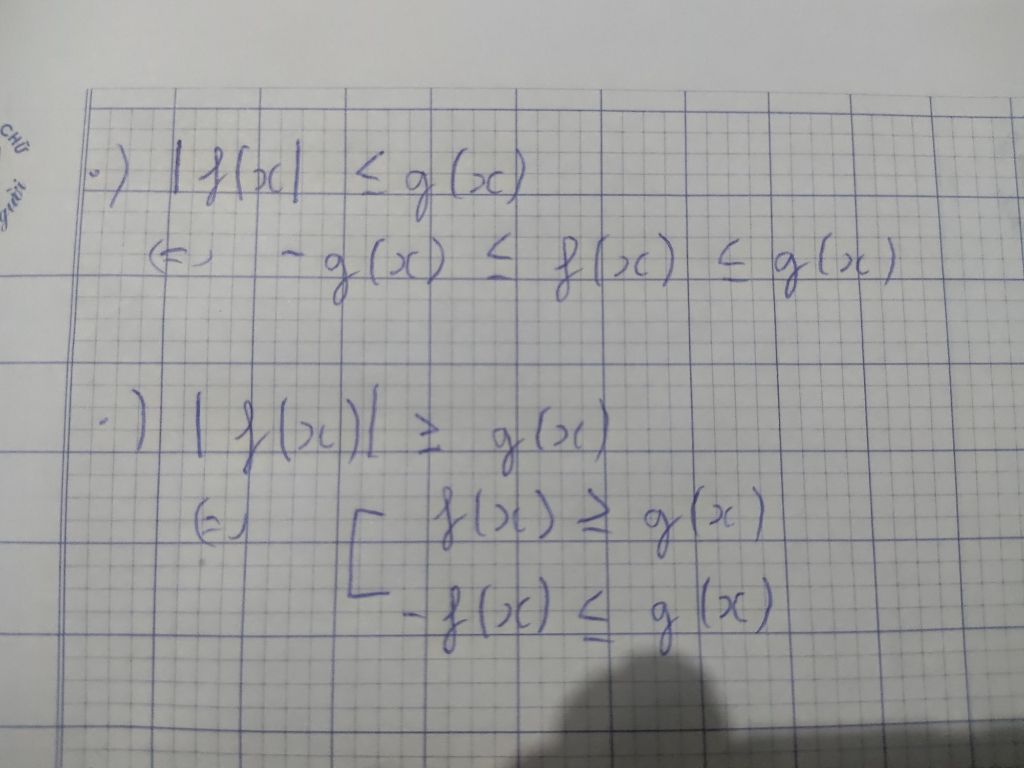 CHỮ
giải
·) |f(x| ≤ g(x)
(=) -g(x) ≤ f(x) ≤ g(x)
·) |f(x)| ≥ g(x)
(=) [ f(x) ≥ g(x)
-f(x) ≤ g(x)